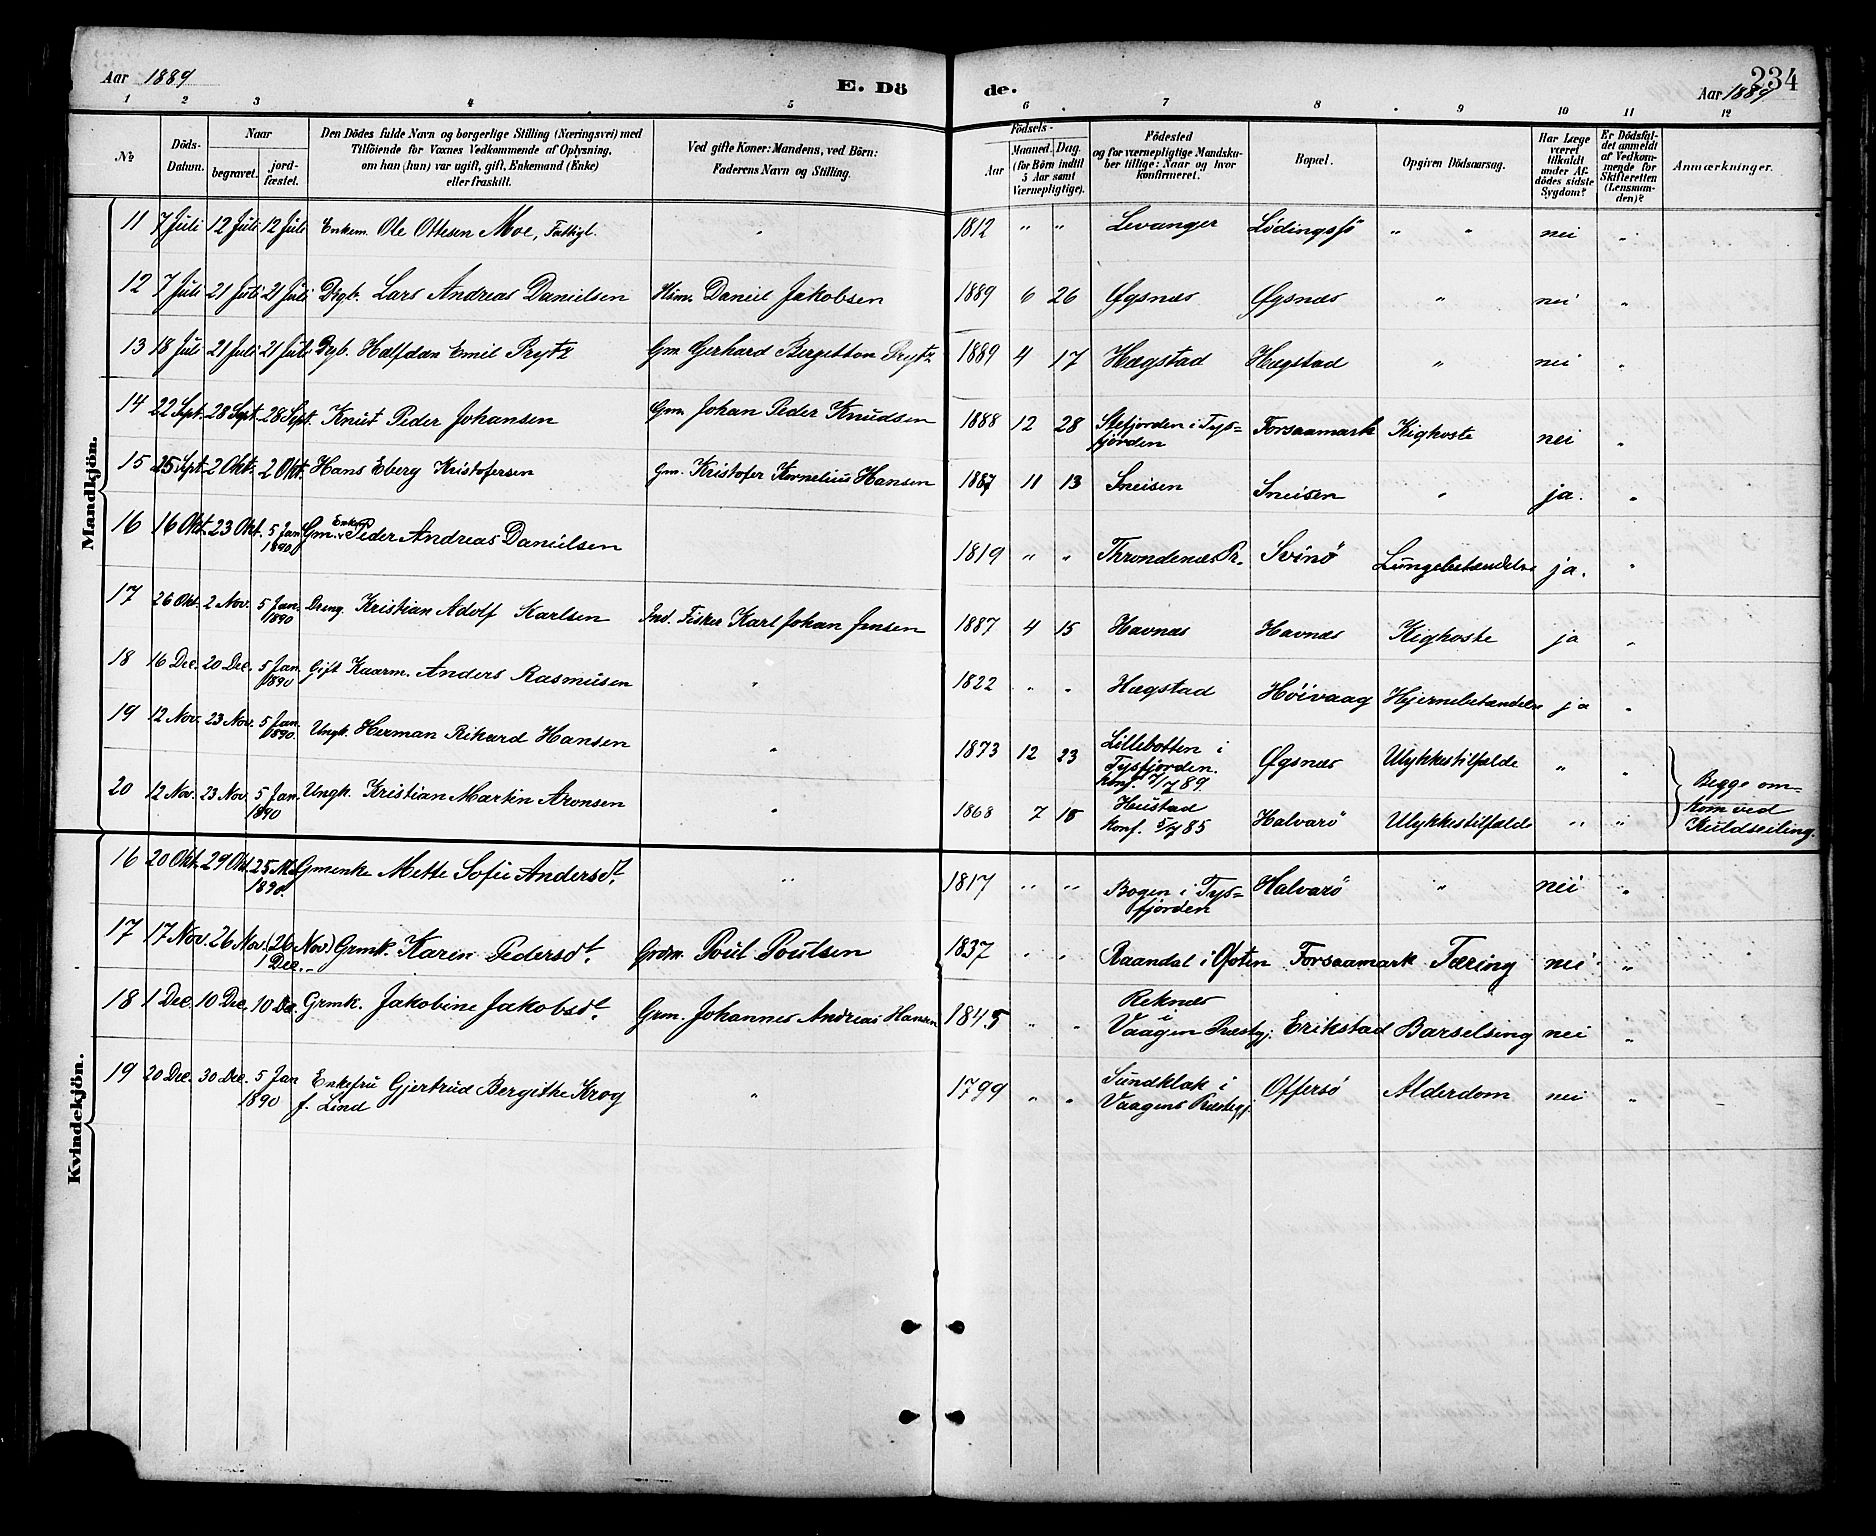 Aar 1889
E. Dö
de.
234
Aar 1889
1 2 3 4 5 6 7 8 9 10 11 12
№
Döds-Datum.
Naar
begravet.
jordfæstet.
Den Dödes fulde Navn og borgerlige Stilling (Næringsvei) med
Tilföiende for Voxnes Vedkommende af Oplysning,
om han (hun) var ugift, gift, Enkemand (Enke)
eller fraskilt.
Ved gifte Koner: Mandens, ved Börn:
Faderens Navn og Stilling.
Födsels-
Aar
Maaned. Dag.
(for Börn indtil
5 Aar samt
Værnepligtige).
Födested
og for værnepligtige Mandskaber tillige: Naar og hvor
konfirmeret.
Bopæl.
Opgiven Dödsaarsag.
Har Læge
været
tilkaldt
under Afdödes sidste
Sygdom?
Er Dödsfaldet anmeldt
af Vedkommende for
Skifteretten
(Lensmanden)?
Anmærkninger.
Mandkjön.
11 7 Juli 12 Juli 12 Juli Enkem. Ole Ottesen Moe, Fattigl. " 1812 " " Levanger Lödingsfö " " nei "
12 7 Juli 21 Juli 21 Juli Drgb. Lars Andreas Danielsen Daniel Jakobsen 1889 6 26 Øgsnæs Øgsnæs " nei "
13 18 Juli 21 Juli 21 Juli Halfdan Emil Prytz Gm. Gerhard Bergitton Prytz 1889 4 17 Hægstad Hægstad " nei "
14 22 Sept. 28 Sept. 28 Sept. Knut Peder Johansen Gm. Johan Peder Knudsen 1888 12 28 Stefjorden i Tys=
fjorden Forsaamark Kighoste nei "
15 25 Sept. 2 Okt. 2 Okt. Hans Eberg Kristofersen Gm. Kristofer Kornelius Hansen 1887 11 13 Sneisen Sneisen " ja. "
16 16 Okt. 23 Okt. 5 Jan
1890 Gm. Enkem. Peder Andreas Danielsen 1819 " " Throndenæs Pr. Svinö Lungebetændelse ja. "
17 26 Okt. 2 Nov. 5 Jan.
1890 Dreng. Kristian Adolf Karlsen Ind. Fisker Karl Johan Jensen 1887 4 15 Havnæs Havnæs Kighoste ja "
18 16 Dec. 20 Dec. 5 Jan.
1890 Gift Kaarm. Anders Rasmusen " 1822 " " Hægstad Höivaag Hjernebetændelse ja "
19 12 Nov. 23 Nov. 5 Jan.
1890. Ungk. Herman Rikard Hansen " 1873 12 23 Lillebotten i
Tysfjorden.
Konf. 7/7 89. Øgsnæs Ulykkestilfælde " "
20 12 Nov. 23 Nov. 5 Jan.
1890 Ungk. Kristian Martin Aronsen " 1868 7 18 Heustad
Konf. 5/7 85 Halvarö Ulykkestilfælde " "
Begge om=
kom ved
Kuldseiling.
Kvindekjön.
16 20 Okt. 29 Okt. 25
1890. Gmenke Mette Sofie Andersdt. " 1817 " " Bogen i Tys=
fjorden Halvarö " nei "
17 17 Nov. 26 Nov. (26 Nov.)
1 Dec. Grmk. Karen Pedersdt. Grdm. Poul Poulsen 1837 " " Raandal i Ofoten Forsaamark Tæring nei "
18 1 Dec. 10 Dec. 10 Dec. Grmk. Jakobine Jakobsdt. Grm. Johannes Andreas Hansen 1845 " " Reknes
i
Vaagen Præstgj. Erikstad Barselsing nei "
19 20 Dec. 30 Dec. 5 Jan
1890 Enkefru Gjertrud Bergithe Krog
f. Lind " 1799 " " Sundklak i
Vaagens Præstegj. Offersö Alderdom nei "